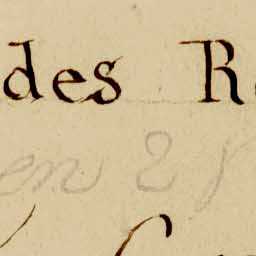 des R
en 28